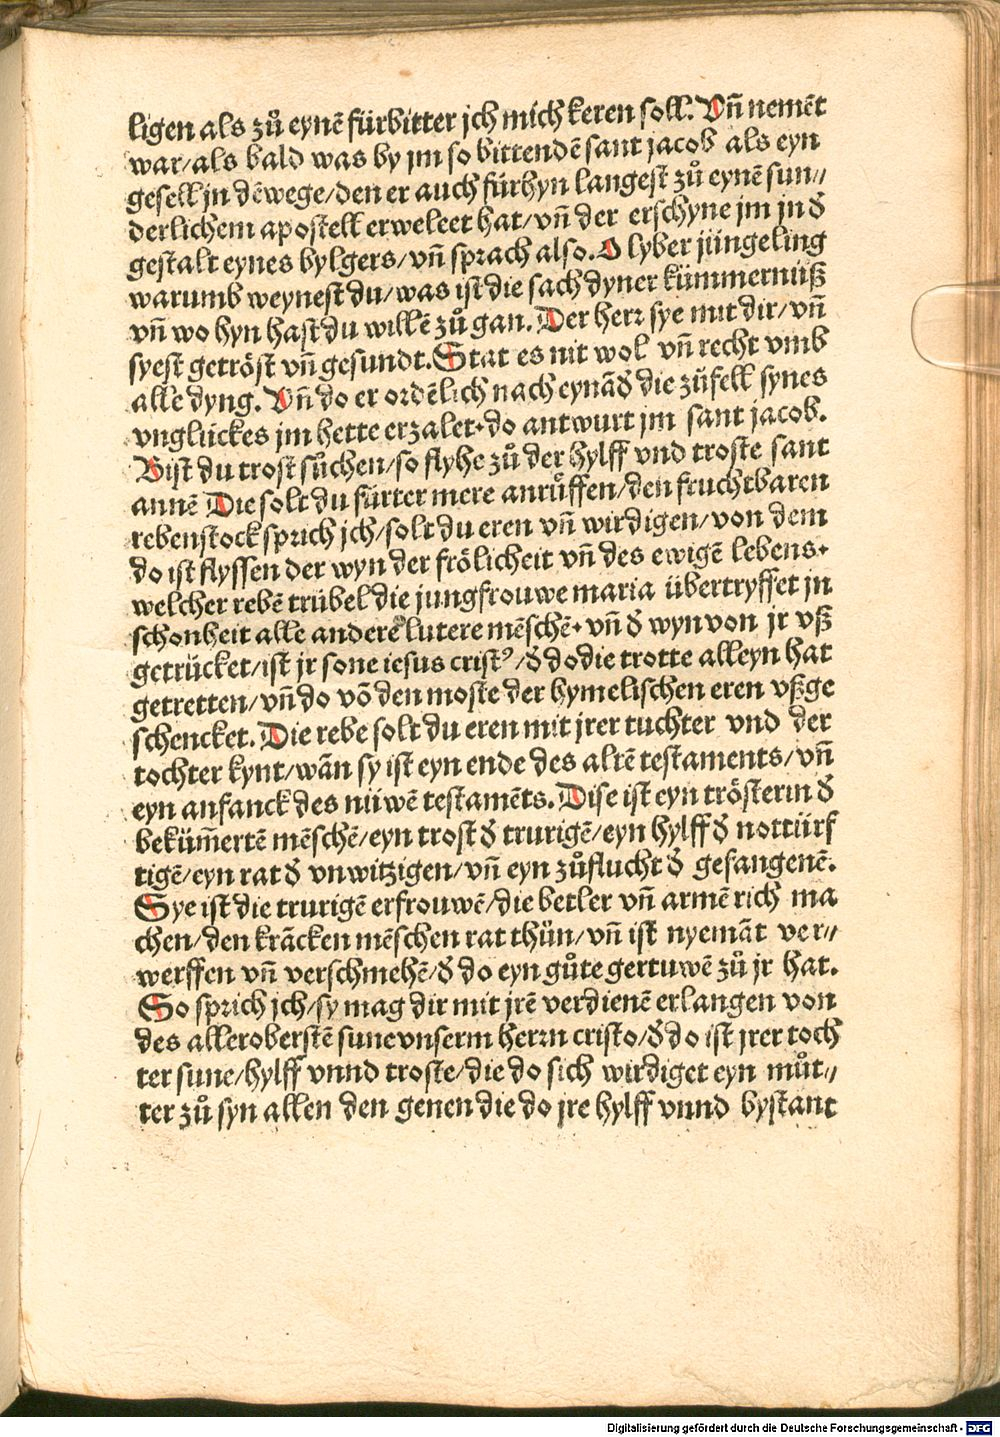 ligen als zů eynē fürbitter jch mich keren soll. Vñ nemēt
war/als bald was by jm so bittendē sant jacob als eyn
gesell jn dē wege/den er auch fürhyn langest zů eynē sun⸗
derlichem apostell erweleet hat/vñ der erschyne jm jn đ
gestalt eynes bylgers/vñ sprach also. O lyber jüngeling
warumb weynest du/was ist die sach dyner kümmernüß
vñ wo hyn hast du willē zů gan. Der herr sye mit dir/vñ
syest getröst vñ gesundt. Stat es nit wol vñ recht vmb
alle dyng. Vñ do er ordēlich nach eynāđ die zůfell synes
vnglückes jm hette erzalet. do antwurt jm sant jacob.
Bist du trost sůchen/so flyhe zů der hylff vnd troste sant
annē Die solt du fürter mere anrůffen/den fruchtbaren
rebenstock sprich jch/solt du eren vñ wirdigen/von dem
do ist flyssen der wyn der frölicheit vñ des ewigē lebens.
welcher rebē trübel die jungfrouwe maria übertryffet jn
schonheit alle anderē lutere mēschē. vñ đ wyn von jr vß
getrücket/ist jr sone iesus cristꝰ/đ do die trotte alleyn hat
getretten/vñ do vō den moste der hymelischen eren vßge
schencket. Die rebe solt du eren mit jrer tuchter vnd der
tochter kynt/wān sy ist eyn ende des altē testaments/vñ
eyn anfanck des nüwē testamēts. Dise ist eyn trösterin đ
bekūmertē mēschē/eyn trost đ trurigē/eyn hylff đ nottürf
tigē/eyn rat đ vnwitzigen/vñ eyn zůflucht đ gefangenē.
Sye ist die trurigē erfrouwē/die betler vñ armē rich ma
chen/den krācken mēschen rat thůn/vñ ist nyemāt ver⸗
werffen vñ verschmehē/đ do eyn gůte gertuwē zů jr hat.
So sprich jch/sy mag dir mit jrē verdienē erlangen von
des alleroberstē sune vnserm herrn cristo/đ do ist jrer toch
ter sune/hylff vnnd troste/die do sich wirdiget eyn můt⸗
ter zů syn allen den genen die do jre hylff vnnd bystant
Digitalisierung gefördert durch die Deutsche Forschungsgemeinschaft - DFG